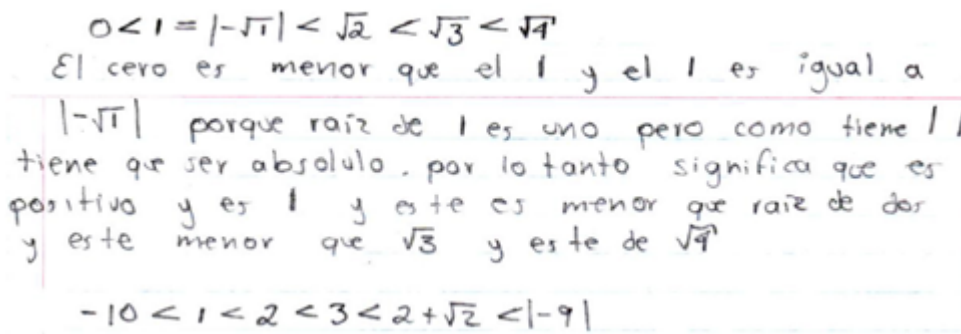 0 < 1 = |-√1| < √2 < √3 < √4
El cero es menor que el 1 y el 1 es igual a
|-√1| porque raíz de 1 es uno pero como tiene | |
tiene que ser absolulo. por lo tanto significa que es
positivo y es 1 y este es menor que raíz de dos
y este menor que √3 y este de √4
-10 < 1 < 2 < 3 < 2+√2 < |-9|